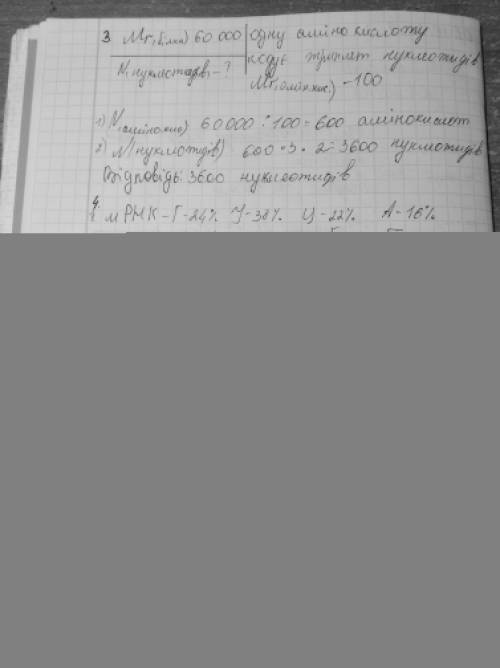 3 Mr(білка) 60 000 одну аміно кислоту
N(нуклеотидів) - ? кодує триплет нуклеотидів
Mr(амінокис.) - 100
1) N(амінокис) 60000 : 100 = 600 амінокислот
2) N(нуклотидів) 600 • 3 • 2 = 3600 нуклотидів
Відповідь: 3600 нуклеотидів
4. м РНК - Г - 24% У - 38% Ц - 22% А - 16%